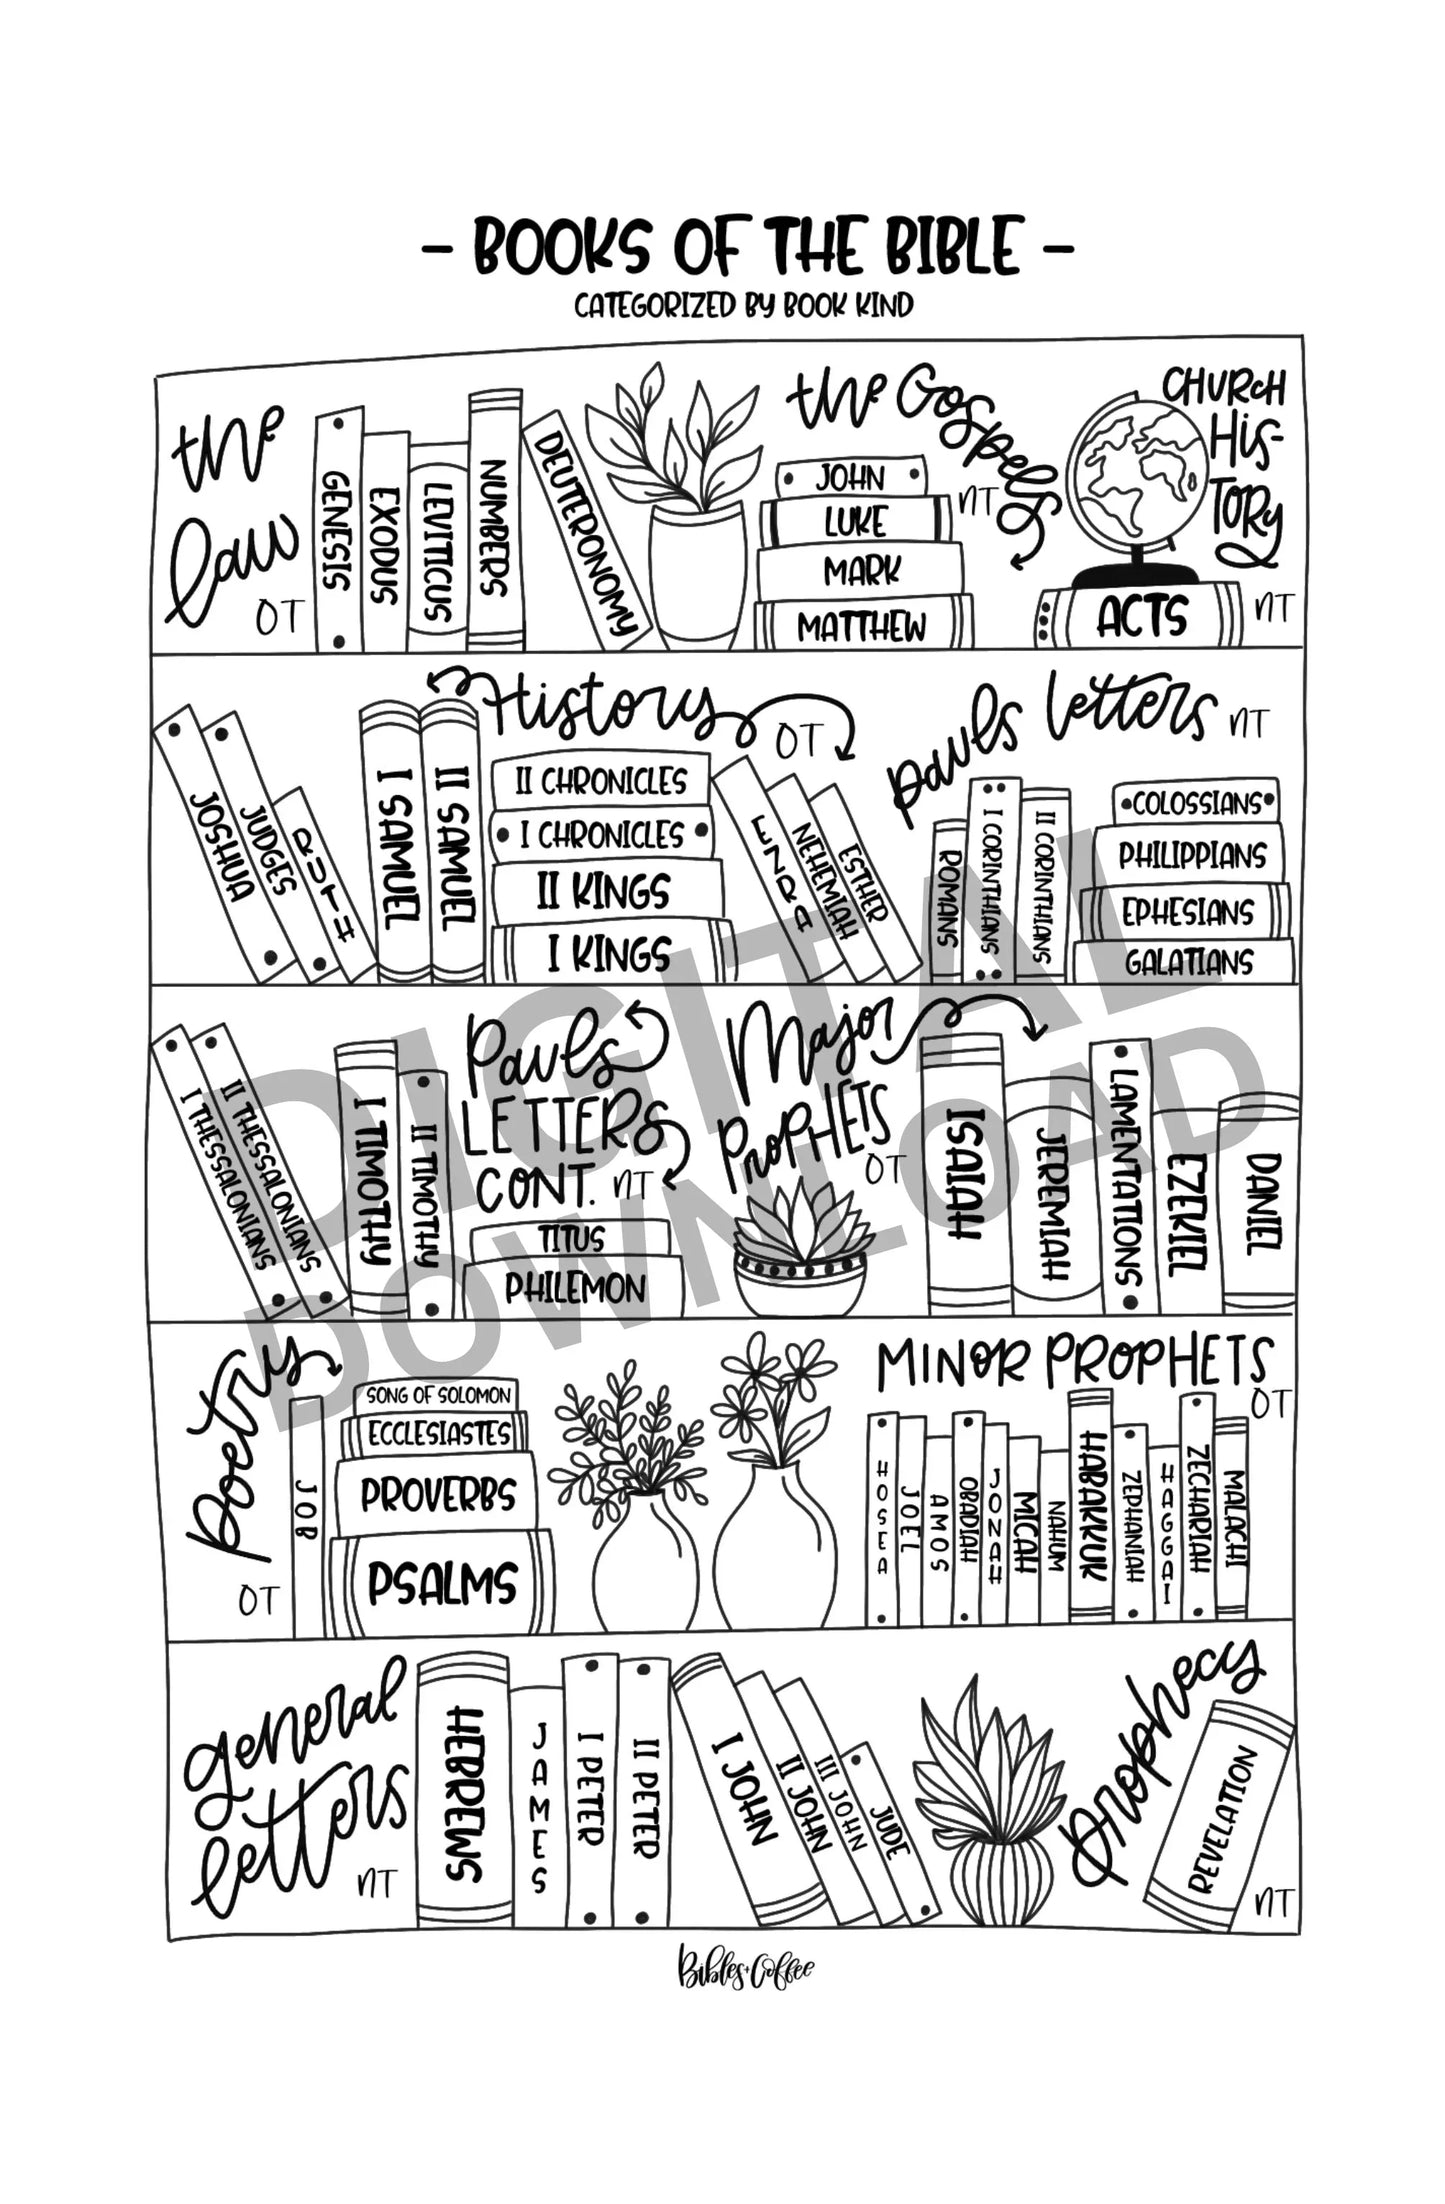 - BOOKS OF THE BIBLE -
CATEGORIZED BY BOOK KIND
the
law
OT
GENESIS
EXODUS
LEVITICUS
NUMBERS
DEUTERONOMY
the Gospels
NT
JOHN
LUKE
MARK
MATTHEW
CHURCH
HIS-
TORY
NT
ACTS
JOSHUA
JUDGES
RUTH
I SAMUEL
II SAMUEL
History
OT
II CHRONICLES
I CHRONICLES
II KINGS
I KINGS
EZRA
NEHEMIAH
ESTHER
pauls letters
NT
ROMANS
I CORINTHIANS
II CORINTHIANS
COLOSSIANS
PHILIPPIANS
EPHESIANS
GALATIANS
I THESSALONIANS
II THESSALONIANS
I TIMOTHY
II TIMOTHY
Pauls
LETTERS
CONT.
NT
TITUS
PHILEMON
Major
PROPHETS
OT
ISAIAH
JEREMIAH
LAMENTATIONS
EZEKIEL
DANIEL
DIGITAL
DOWNLOAD
poetry
OT
JOB
SONG OF SOLOMON
ECCLESIASTES
PROVERBS
PSALMS
MINOR PROPHETS
OT
HOSEA
JOEL
AMOS
OBADIAH
JONAH
MICAH
NAHUM
HABAKKUK
ZEPHANIAH
HAGGAI
ZECHARIAH
MALACHI
general
letters
NT
HEBREWS
JAMES
I PETER
II PETER
I JOHN
II JOHN
III JOHN
JUDE
prophecy
REVELATION
NT
Bibles+Coffee